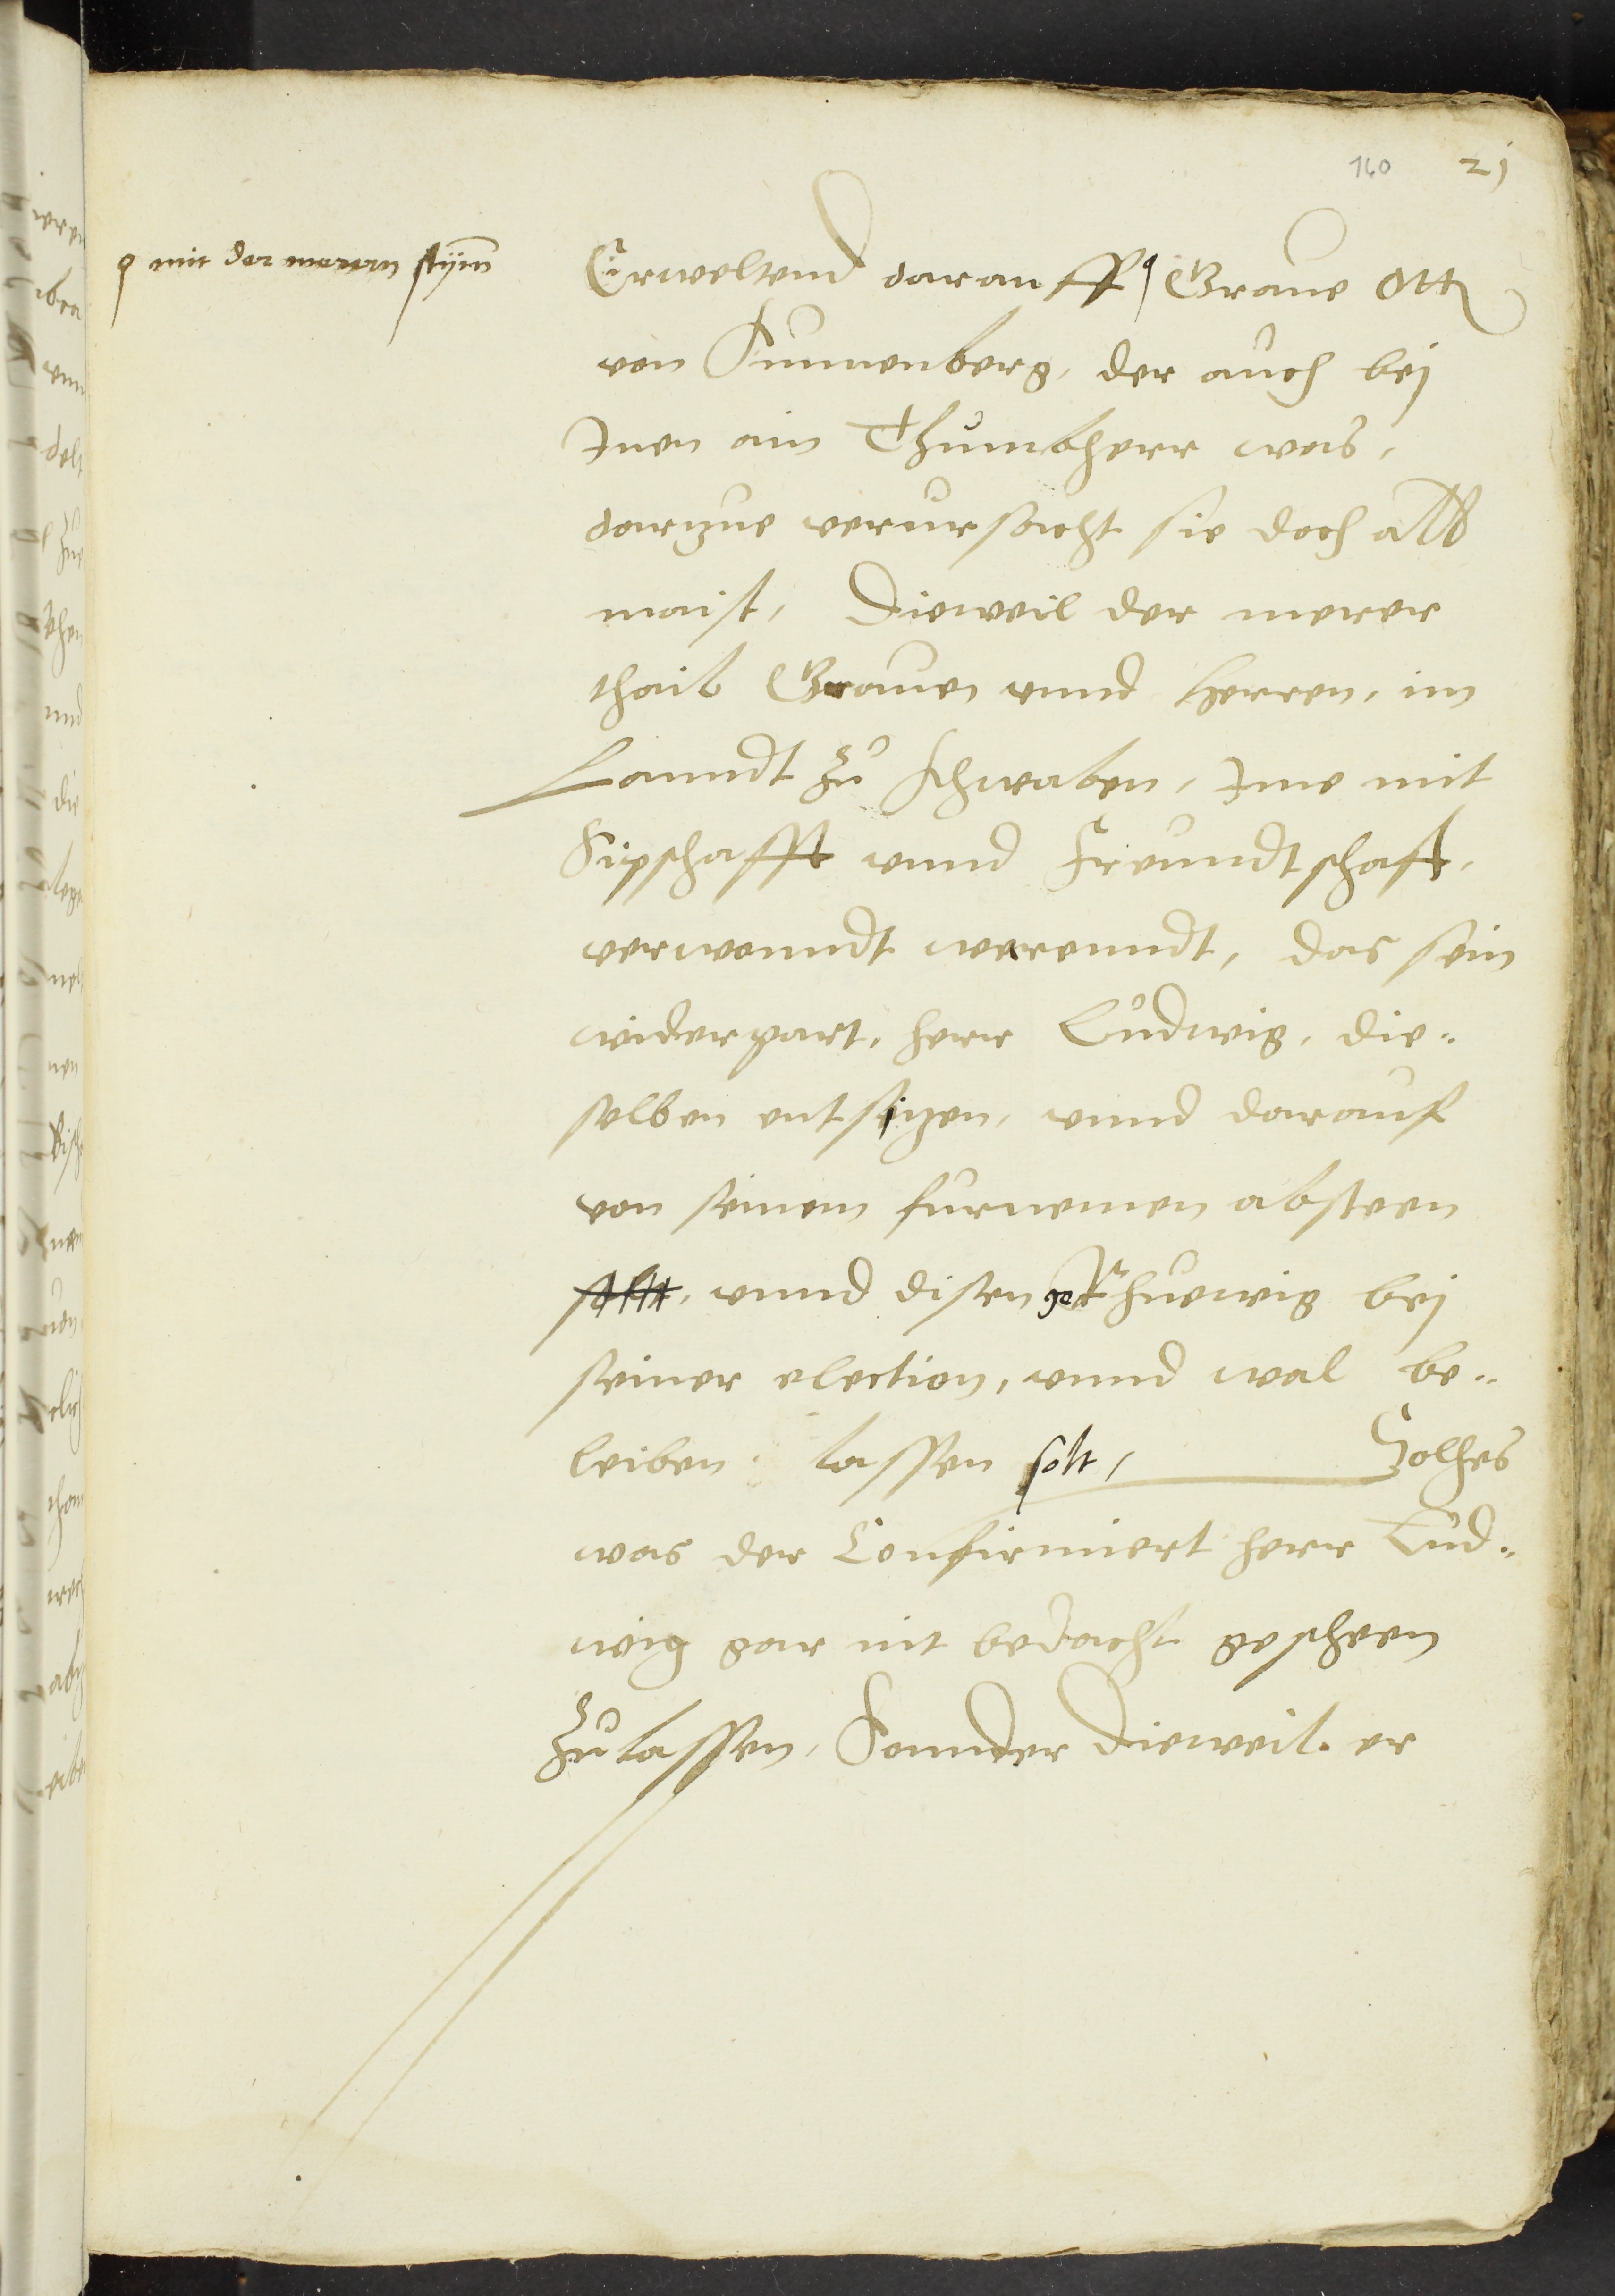 160 21
mit der merern stÿm̄
Erweltend daranff Graue Ott
von Sunnenberg, der auch bej
Inen ain Thumbherr was,
darzue verursacht sie doch all
maist, Dieweil der merer
thail Grauen vnnd Herren, im
Lanndt zů Schwaben, Ime mit
Sipschafft vnnd Freundtschaft,
verwanndt warenndt, das sein
widerpart, herr Lůdwig, die„
selben entsitzen, vnnd darauf
von seinem furnemen absteen
solt, vnnd disen bej
seiner election, vnnd wal be„
leiben lassen solt, Solhes
was der Confirmiert herr Lůd„
wig gar nit bedacht gescheen
zulassen, Sonnder dieweil er